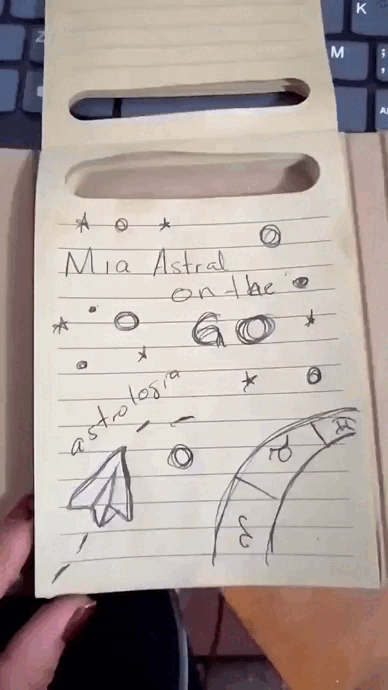 Mia Astral
on the
GO
astrologia
K
M